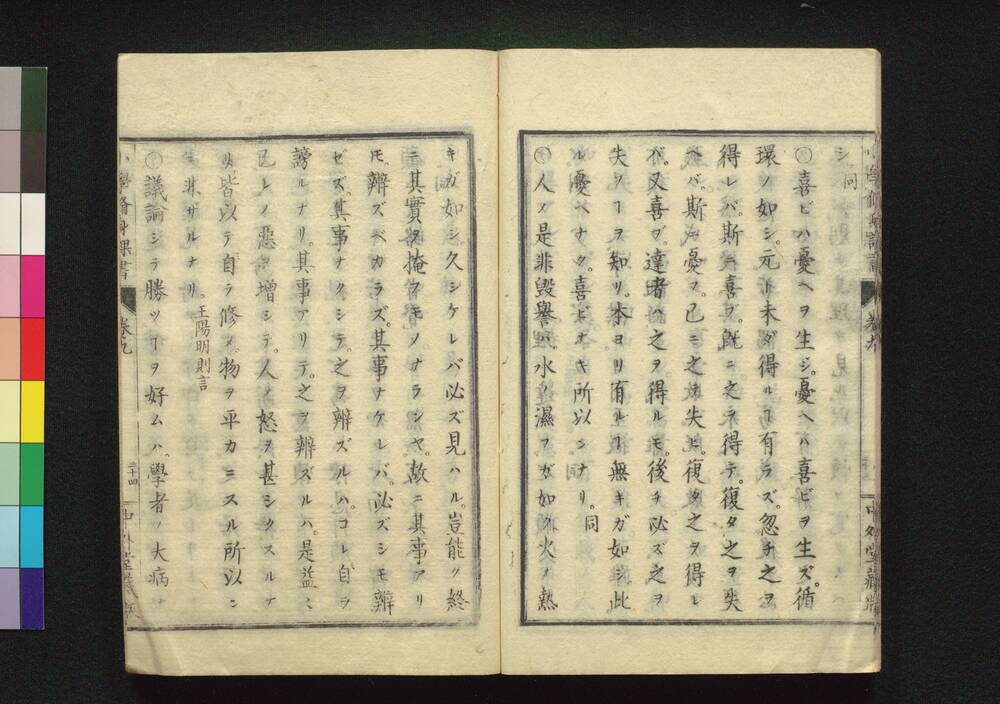 小學修身課書 卷九 中外堂藏版
シ。同
喜ビハ憂ヘヲ生ジ。憂ヘハ喜ビヲ生ズ。循
環ノ如シ。元ト未ダ得ルヿ有ラズ。忽チ之ヲ
得レバ。斯ニ喜ブ。既ニ之ヲ得テ。復タ之ヲ失
ヘバ。斯ニ憂フ。已ニ之ヲ失ヒ。復タ之ヲ得レ
バ。又喜ブ。達者ハ之ヲ得ルモ。後チ必ズ之ヲ
失フヿヲ知リ。本ヨリ有ルヿ無キガ如シ。此
レ憂ヘナク。喜ビナキ所以ンナリ。同
人ノ是非毀譽ハ。水ノ濕フガ如ク。火ノ熱
キガ如シ。久シケレバ必ズ見ハル。豈能ク終
ニ其實ヲ掩フモノナランヤ。故ニ其事アリ
モ。辨ズベカラズ。其事ナケレバ。必ズシモ辨
ゼズ。其事ナクシテ。之ヲ辨ズルハ。コレ自ラ
謗ルナリ。其事アリテ。之ヲ辨ズルハ。是益〻
己レノ惡ヲ增シテ。人ノ怒ヲ甚シクスルナ
リ。皆以テ自ラ修メ。物ヲ平カニスル所以ン
ニ非ザルナリ。王陽明則言
議論シテ勝ツヿヲ好ムハ。學者ノ大病ナ
小學修身課書 卷九 三十四 中外堂藏版